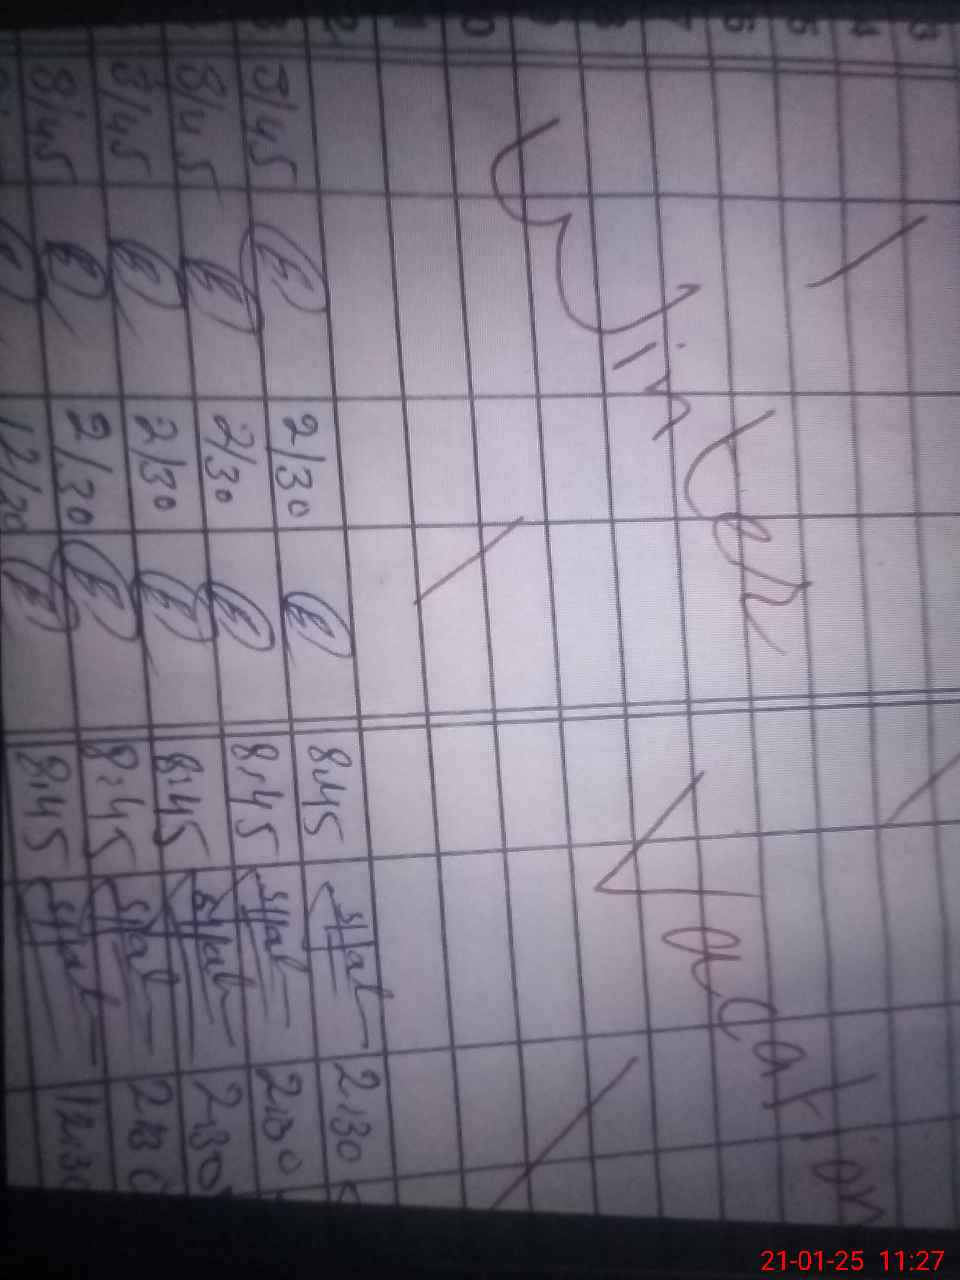 3
4
5
6
7
8
Winter Vacation
0
2
8/45 E 2/30 E 8:45 2:30
8/45 E 2/30 E 8:45 2:30
8/45 E 2/30 E 8:45 2:30
8/45 E 2/30 E 8:45 2:30
E 12/30 E 8:45 12:30
21-01-25 11:27